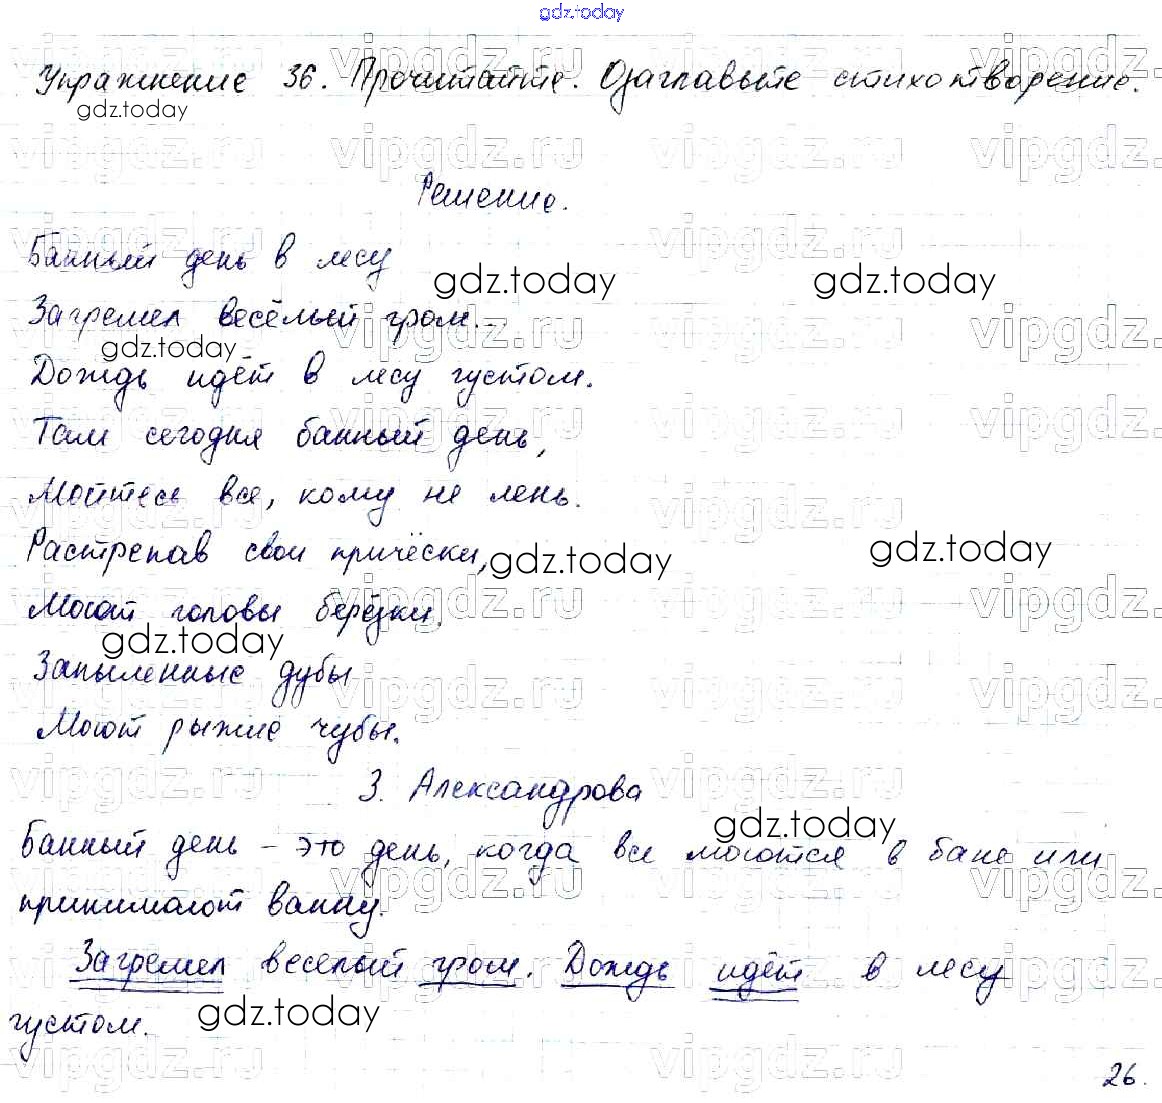 gdz.today
Упражнение 36. Прочитайте. Озаглавьте стихотворение.
gdz.today
Решение.
Банный день в лесу
gdz.today gdz.today
Загремел весёлый гром...
gdz.today
Дождь идёт в лесу густом.
Там сегодня банный день,
Мойтесь все, кому не лень.
Растрепав свои причёски,
gdz.today gdz.today
Моют головы берёзки.
gdz.today
Запыленные дубы
Моют рыжие чубы.
З. Александрова
gdz.today
Банный день – это день, когда все моются в бане или
принимают ванну.
Загремел веселый гром. Дождь идёт в лесу
густом.
gdz.today
26.
vipgdz.ru